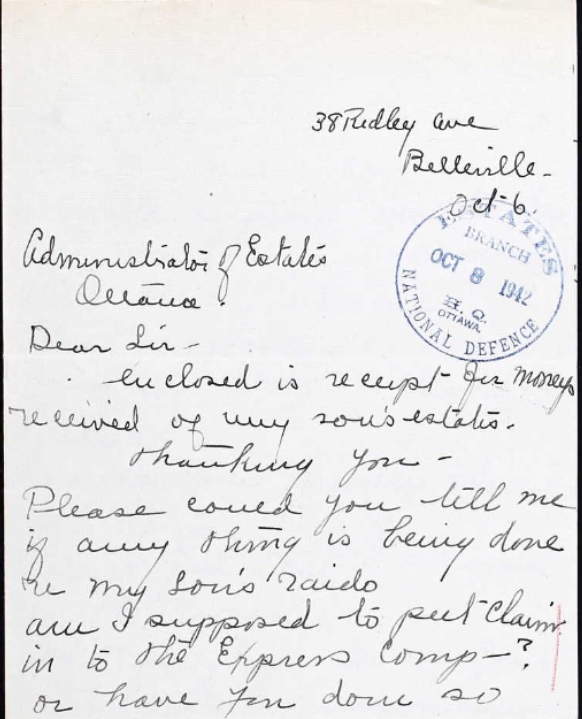 38 Ridley ave
Belleville-
Oct 6.
ESTATES
BRANCH
OCT 8 1942
H. Q.
OTTAWA.
NATIONAL DEFENCE
Administrator of Estates
Ottawa.
Dear Sir-
enclosed is receipt for moneys
received of my son's estate.
thanking you-
Please could you tell me
if any thing is being done
re my son's raido
am I supposed to put claim
in to the Express Comp-?
or have you done so